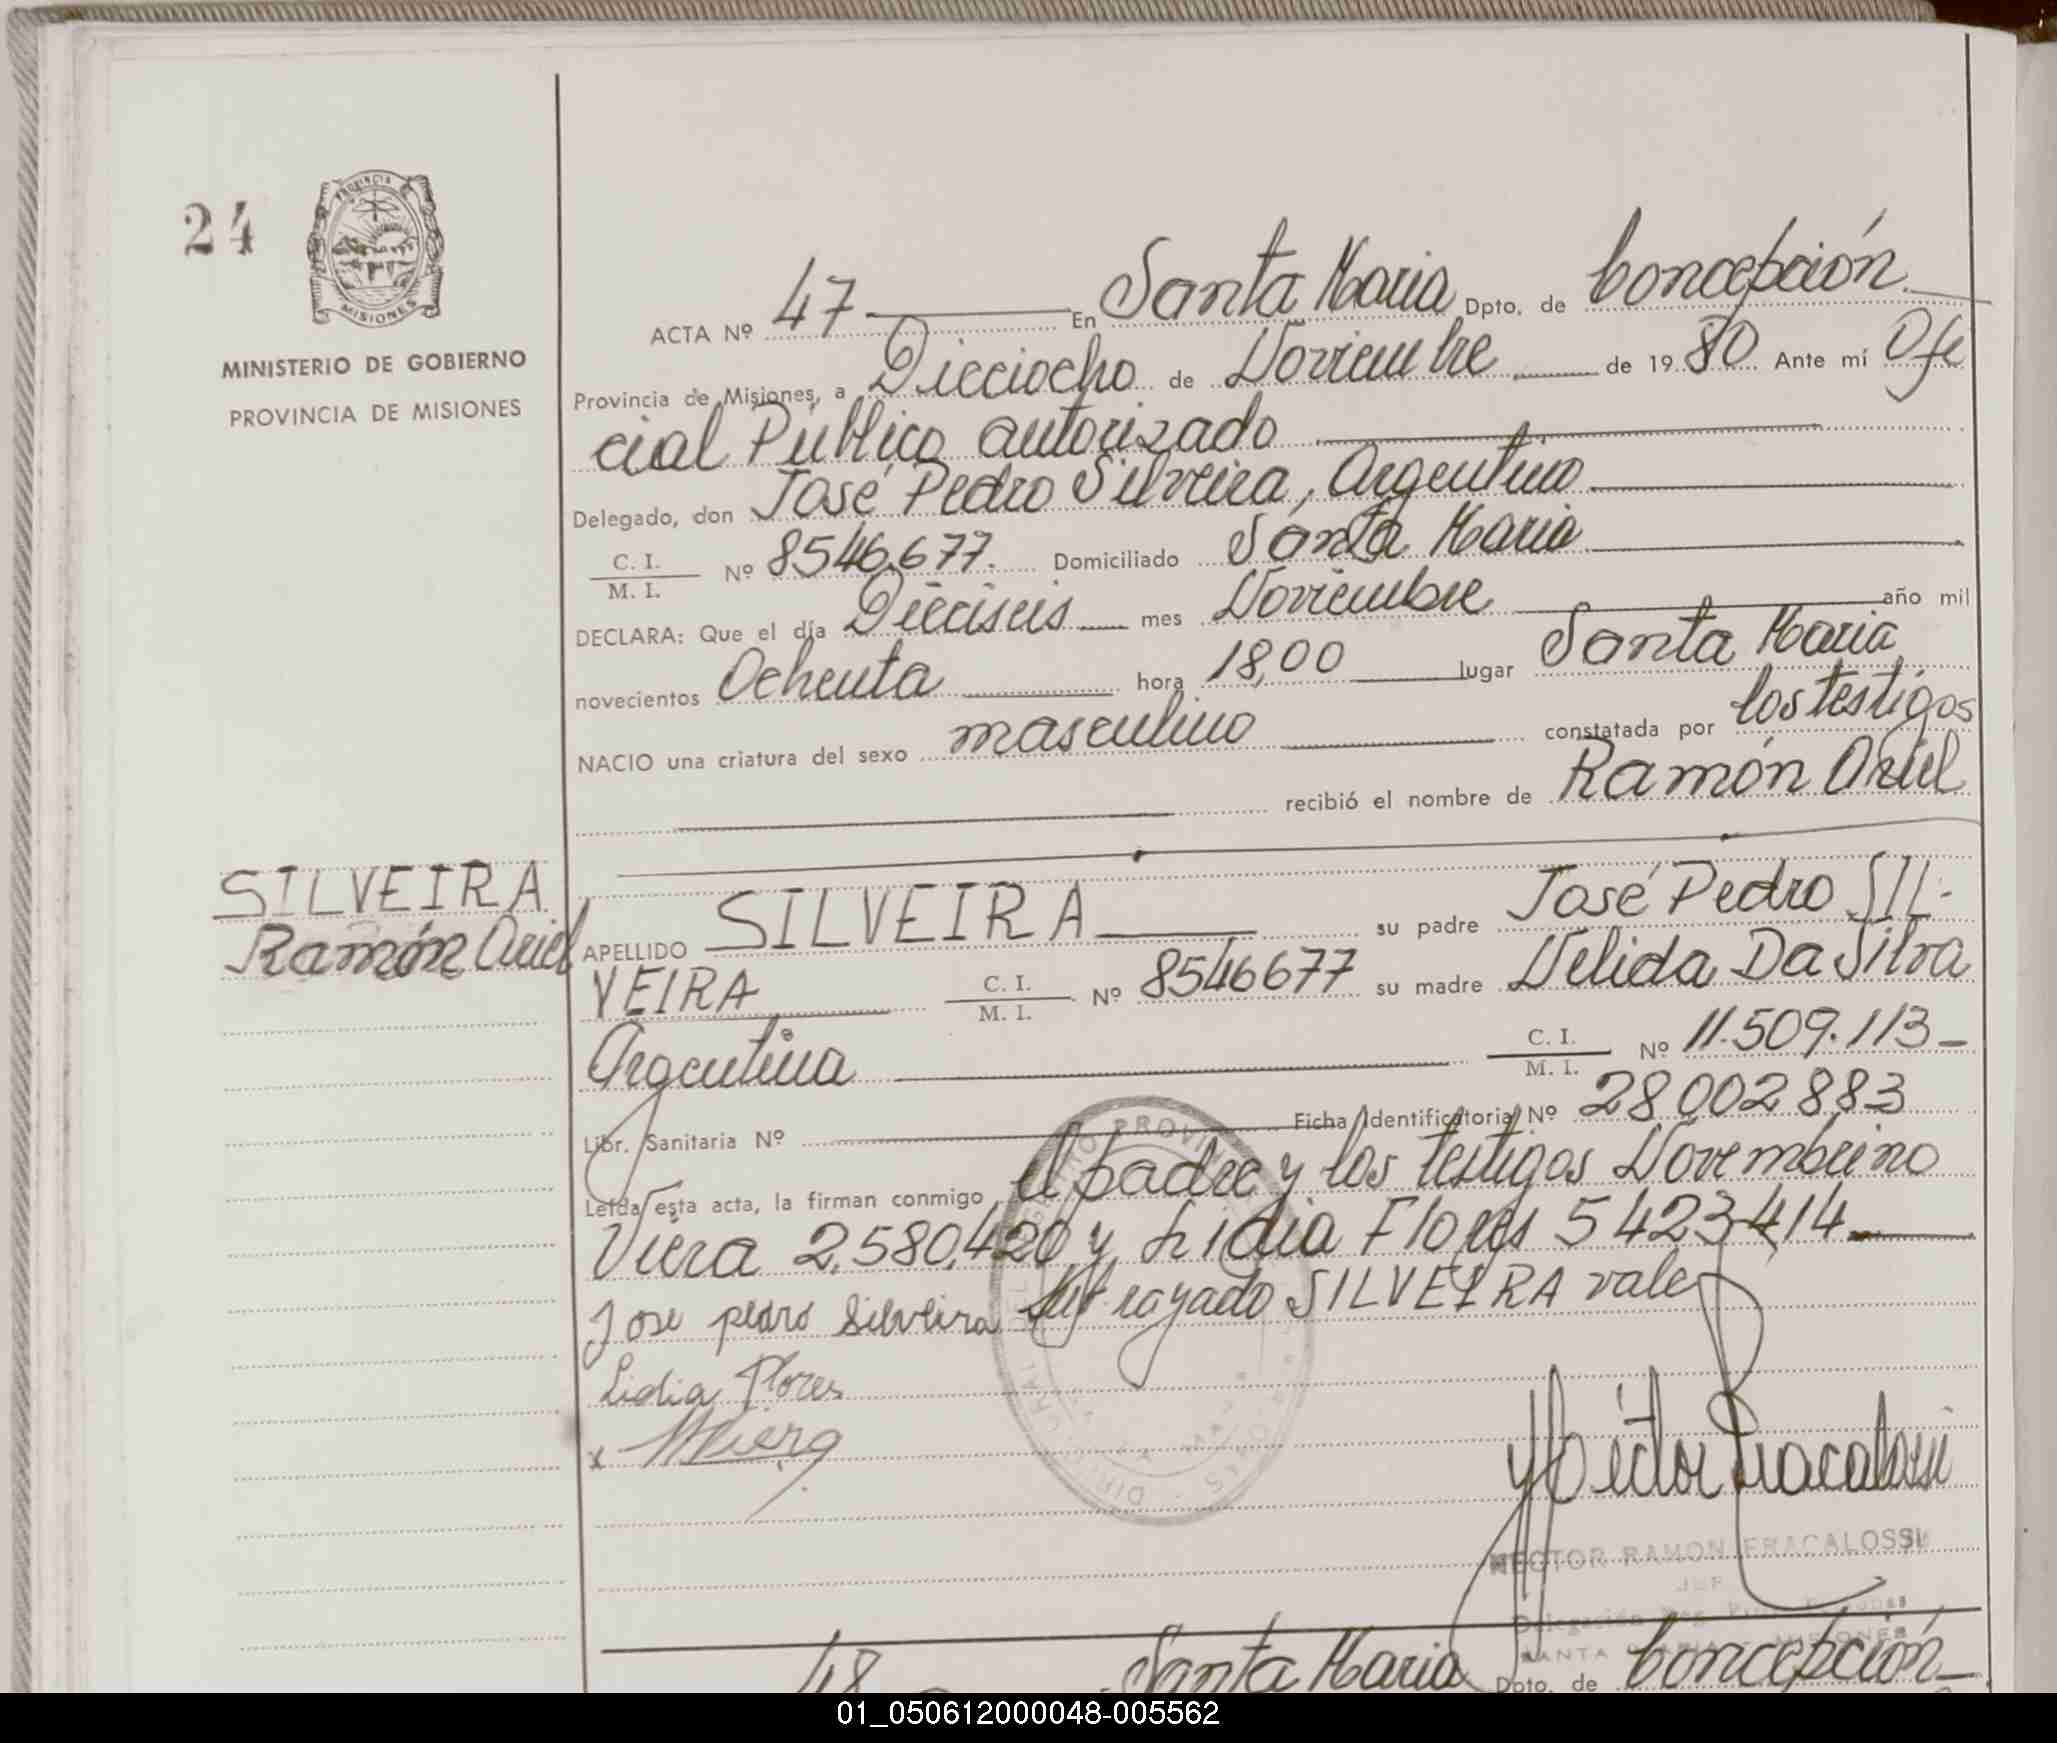 24
PROVINCIA
MISIONES
MINISTERIO DE GOBIERNO
PROVINCIA DE MISIONES
ACTA Nº 47 En Santa Maria Dpto. de Concepción
Provincia de Misiones, a Dieciocho de Noviembre de 1980 Ante mí Ofi
cial Público autorizado
Delegado, don José Pedro Silveira, Argentino
C. I.
M. I. Nº 8546.677. Domiciliado Santa Maria
DECLARA: Que el día Dieciseis mes Noviembre año mil
novecientos Ochenta hora 18,00 lugar Santa Maria
NACIO una criatura del sexo masculino constatada por los testigos
recibió el nombre de Ramón Ariel
SILVEIRA
Ramón Ariel
APELLIDO SILVEIRA su padre José Pedro SIL-
VEIRA C. I.
M. I. Nº 8546677 su madre Nelida Da Silva
Argentina C. I.
M. I. Nº 11.509.113
Libr. Sanitaria Nº Ficha Identificatoria Nº 28002883
Leída esta acta, la firman conmigo el padre y los testigos Novembrino
Viera 2.580.420 y Lidia Flores 5423414
Jose pedro Silveira rayado SILVEIRA vale
Lidia Flores
x NViera
Héctor Fracalossi
HECTOR RAMON FRACALOSSI
JEF
Delegación Reg.
SANTA MARIA - MISIONES
48 Santa Maria Dpto. de Concepción
01_050612000048-005562